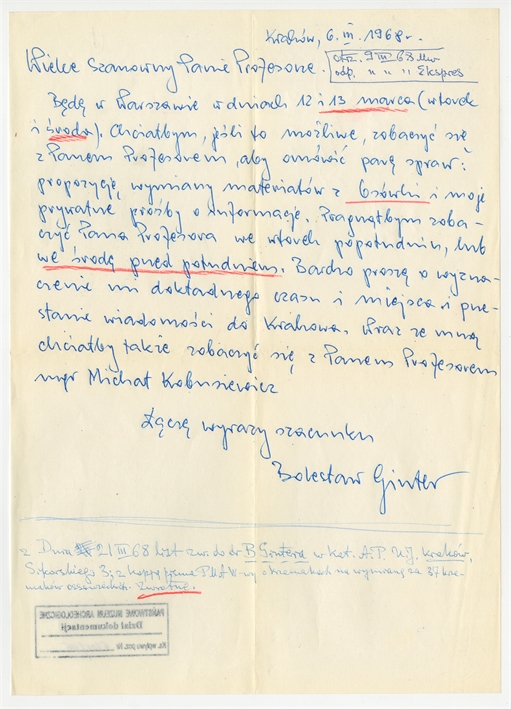 Kraków, 6. III. 1968 r.
otrz. 9 III 68
odp. " " " Ekspres
Wielce Szanowny Panie Profesorze.
Będę w Warszawie w dniach 12 i 13 marca (wtorek
i środa). Chciałbym, jeśli to możliwe, zobaczyć się
z Panem Profesorem, aby omówić parę spraw:
propozycję wymiany materiałów z Osówki i moje
prywatne prośby o informacje. Pragnąłbym zoba-
czyć Pana Profesora we wtorek popołudniu, lub
we środę przed południem. Bardzo proszę o wyzna-
czenie mi dokładnego czasu i miejsca i prze-
słanie wiadomości do Krakowa. Wraz ze mną
chciałby także zobaczyć się z Panem Profesorem
mgr Michał Kobusiewicz
Łączę wyrazy szacunku
Bolesław Ginter
z Dnia 21 III 68 list zw. do dr B. Gintera w Kat. A.P. U.J. Kraków,
Sikorskiego 3; z kopią pisma o krzemieniach na wymianę za 37 krze-
maków ossowskich. Zwrotne.
PAŃSTWOWE MUZEUM ARCHEOLOGICZNE
Dział dokumentacji
Ks. wpływu poz. Nr